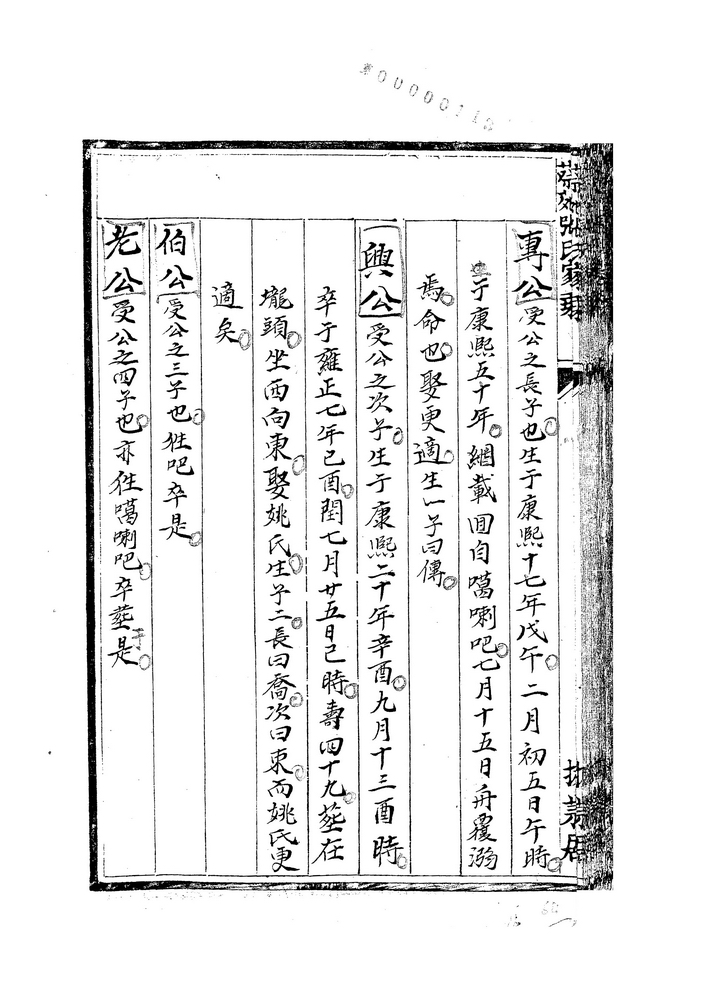 00000113
專公受公之長子也生于康熙十七年戊午二月初五日午時
于康熙五十年綑載回自噶喇吧七月十五日舟覆溺
焉命也娶更適生一子曰傳
興公受公之次子生于康熙二十年辛酉九月十三酉時
卒于雍正七年己酉閏七月廿五日己時壽四十九葬在
壠頭坐西向東娶姚氏生子二長曰喬次曰東而姚氏更
適矣
伯公受公之三子也徃吧卒是
老公受公之四子也亦徃噶喇吧卒塟于是